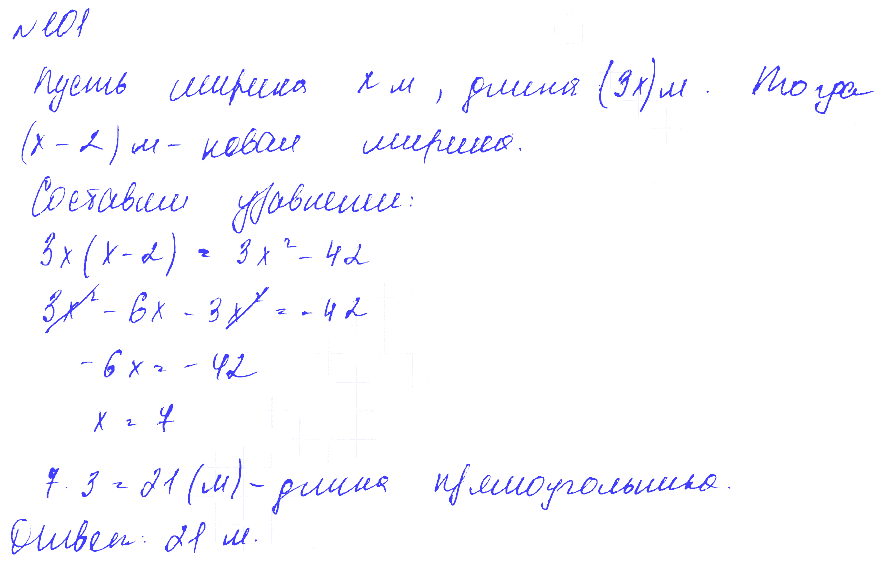 №101
Пусть ширина x м, длина (3x) м. Тогда
(x-2) м - новая ширина.
Составим уравнение:
3x(x-2) = 3x² - 42
3x² - 6x - 3x² = -42
-6x = -42
x = 7
7·3 = 21 (м) - длина прямоугольника.
Ответ: 21 м.